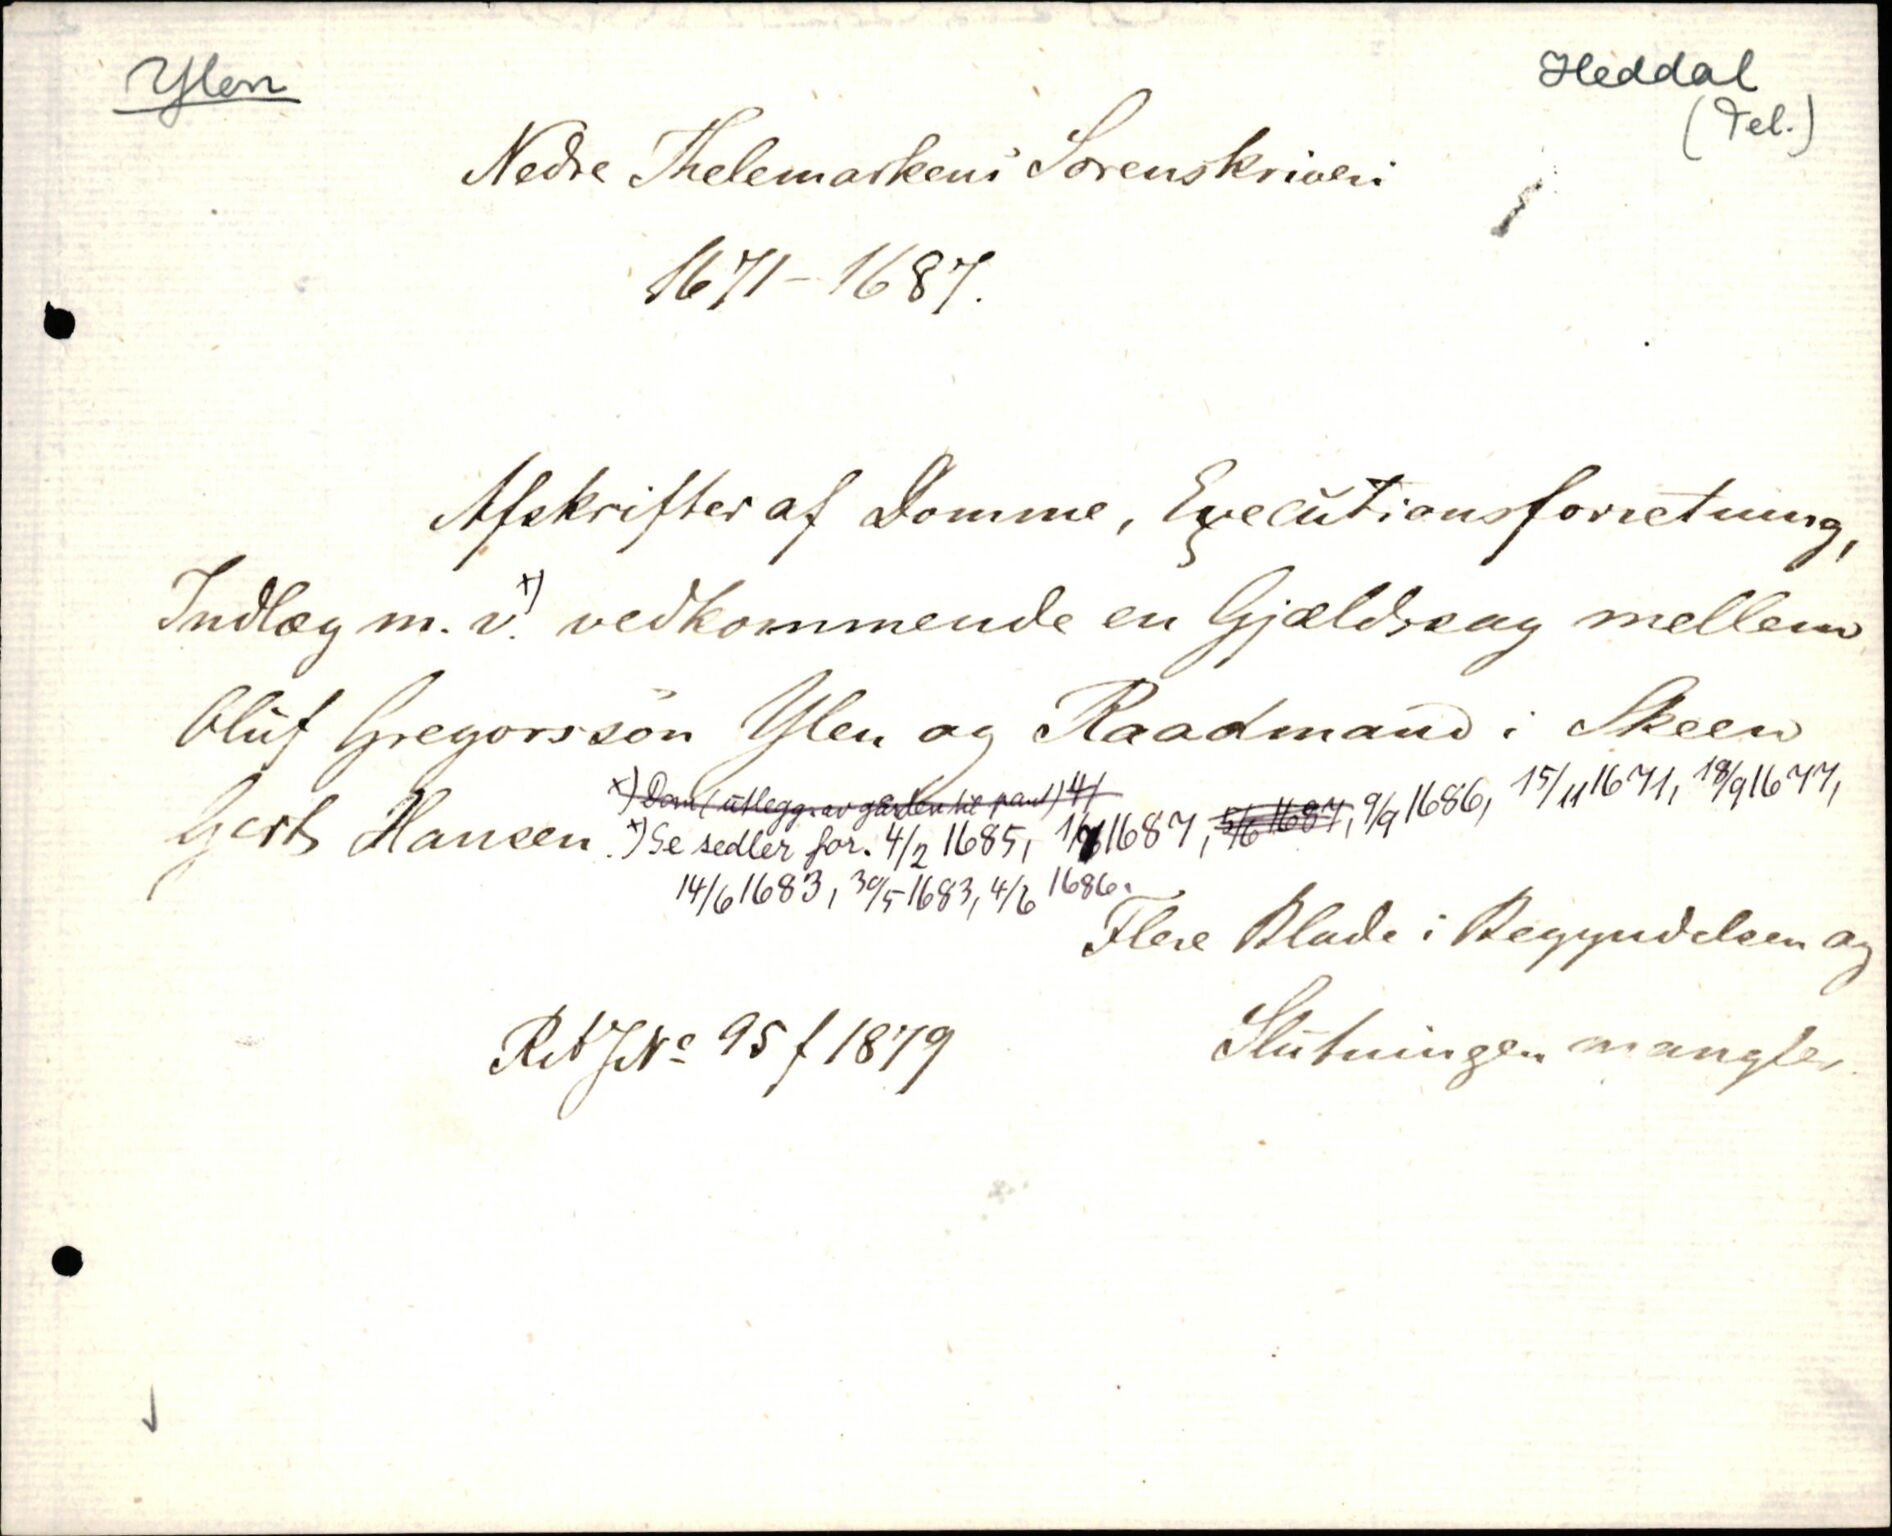 Ylen
Heddal
(Tel.)
Nedre Thelemarkens Sorenskriveri
1671-1687.
Afskrifter af Domme, Executionsforretning,
Indlæg m. v. x) vedkommende en Gjældssag mellem
Oluf Gregorssön Ylen og Raadmand i Skeen
Gert Hansen.
x) Dom (utlegg av gården til pant) 4/
x) Se sedler for. 4/2 1685, 1687, 5/6 1687, 9/9 1686, 15/11 1671, 18/9 1677,
14/6 1683, 30/5 1683, 4/6 1686.
Flere Blade i Begyndelsen og
Slutningen mangler.
RA J№ 95 f 1879